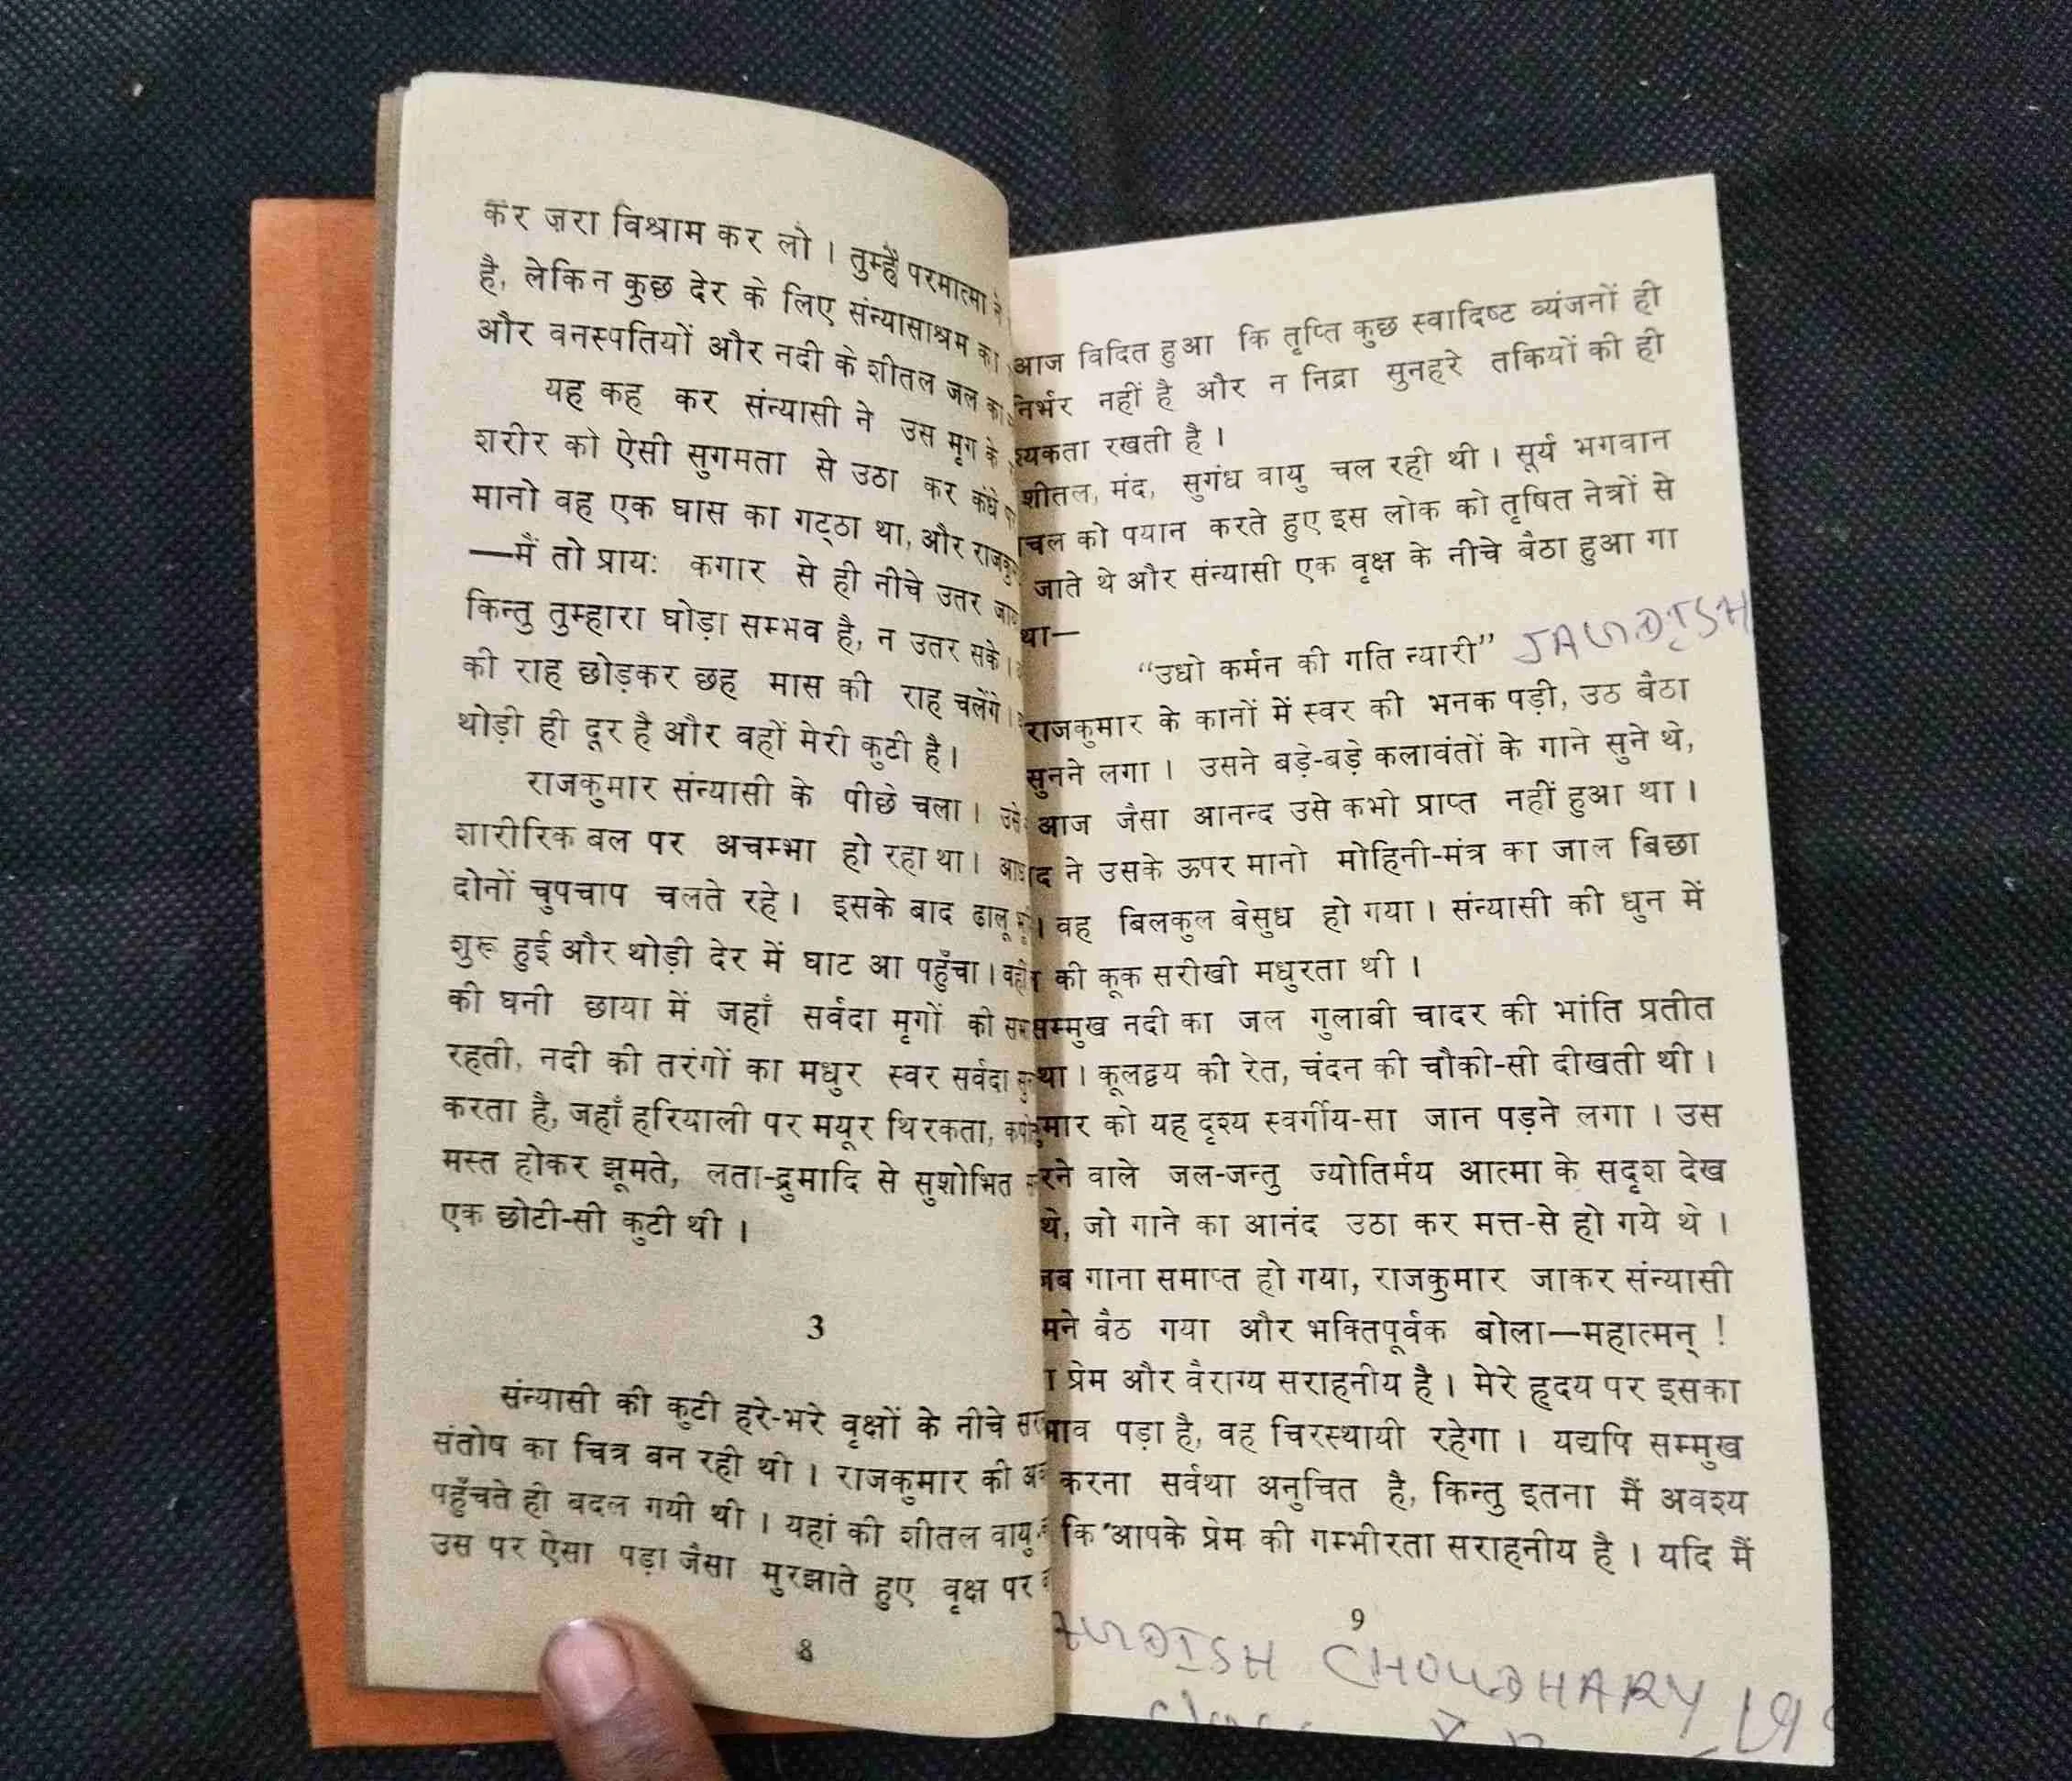 कर ज़रा विश्राम कर लो । तुम्हें परमात्मा ने
है, लेकिन कुछ देर के लिए संन्यासाश्रम का
और वनस्पतियों और नदी के शीतल जल का
यह कह कर संन्यासी ने उस मृग के
शरीर को ऐसी सुगमता से उठा कर कंधे
मानो वह एक घास का गट्ठा था, और
—मैं तो प्रायः कगार से ही नीचे उतर
किन्तु तुम्हारा घोड़ा सम्भव है, न उतर सके ।
की राह छोड़कर छह मास की राह चलेंगे ।
थोड़ी ही दूर है और वहीं मेरी कुटी है ।
राजकुमार संन्यासी के पीछे चला ।
शारीरिक बल पर अचम्भा हो रहा था ।
दोनों चुपचाप चलते रहे । इसके बाद ढालू
शुरू हुई और थोड़ी देर में घाट आ पहुँचा ।
की घनी छाया में जहाँ सर्वदा मृगों की
रहती, नदी की तरंगों का मधुर स्वर सर्वदा
करता है, जहाँ हरियाली पर मयूर थिरकता,
मस्त होकर झूमते, लता-द्रुमादि से सुशोभित
एक छोटी-सी कुटी थी ।
3
संन्यासी की कुटी हरे-भरे वृक्षों के नीचे
संतोष का चित्र बन रही थी । राजकुमार की
पहुँचते ही बदल गयी थी । यहां की शीतल वायु
उस पर ऐसा पड़ा जैसा मुरझाते हुए वृक्ष पर
8
आज विदित हुआ कि तृप्ति कुछ स्वादिष्ट व्यंजनों ही
निर्भर नहीं है और न निद्रा सुनहरे तकियों की ही
श्यकता रखती है ।
शीतल, मंद, सुगंध वायु चल रही थी । सूर्य भगवान
चल को पयान करते हुए इस लोक को तृषित नेत्रों से
जाते थे और संन्यासी एक वृक्ष के नीचे बैठा हुआ गा
था—
“उधो कर्मन की गति न्यारी” JAGDISH
राजकुमार के कानों में स्वर की भनक पड़ी, उठ बैठा
सुनने लगा । उसने बड़े-बड़े कलावंतों के गाने सुने थे,
आज जैसा आनन्द उसे कभी प्राप्त नहीं हुआ था ।
द ने उसके ऊपर मानो मोहिनी-मंत्र का जाल बिछा
। वह बिलकुल बेसुध हो गया । संन्यासी की धुन में
की कूक सरीखी मधुरता थी ।
सम्मुख नदी का जल गुलाबी चादर की भांति प्रतीत
था । कूलद्वय की रेत, चंदन की चौकी-सी दीखती थी ।
मार को यह दृश्य स्वर्गीय-सा जान पड़ने लगा । उस
रने वाले जल-जन्तु ज्योतिर्मय आत्मा के सदृश देख
थे, जो गाने का आनंद उठा कर मत्त-से हो गये थे ।
जब गाना समाप्त हो गया, राजकुमार जाकर संन्यासी
मने बैठ गया और भक्तिपूर्वक बोला—महात्मन् !
प्रेम और वैराग्य सराहनीय है । मेरे हृदय पर इसका
भाव पड़ा है, वह चिरस्थायी रहेगा । यद्यपि सम्मुख
करना सर्वथा अनुचित है, किन्तु इतना मैं अवश्य
कि आपके प्रेम की गम्भीरता सराहनीय है । यदि मैं
9
CHOUDHARY